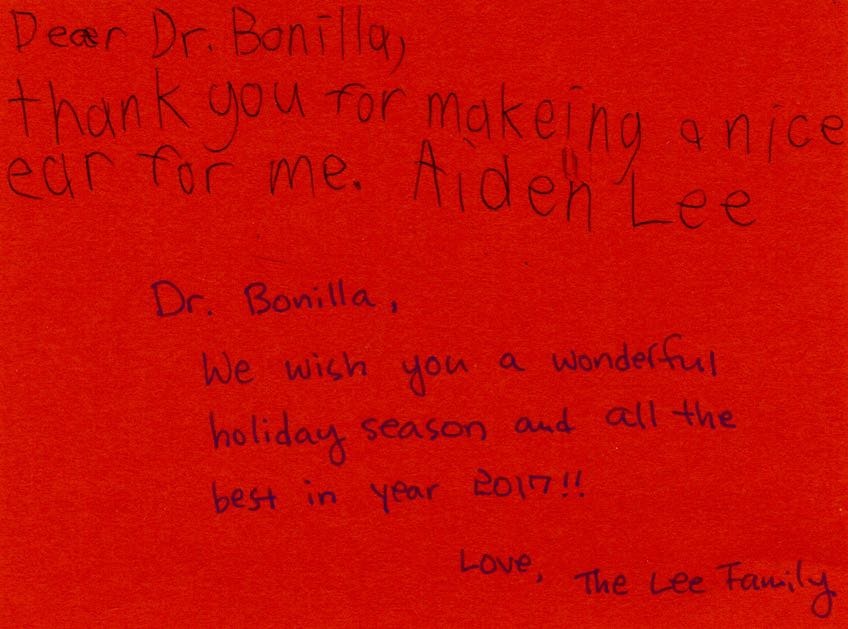 Dear Dr. Bonilla,
thank you for makeing a nice
ear for me. Aiden Lee
Dr. Bonilla,
We wish you a wonderful
holiday season and all the
best in year 2017!!
Love, The Lee Family